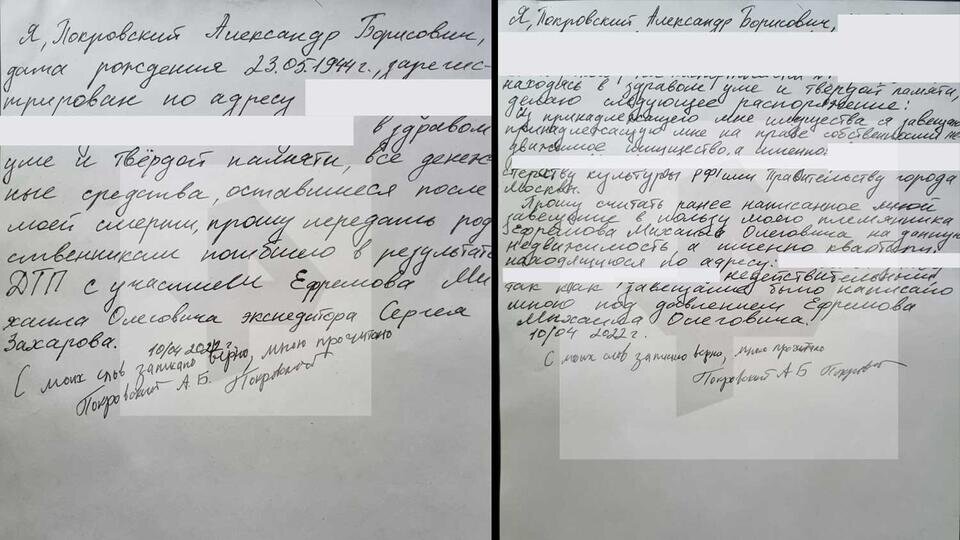 Я, Покровский Александр Борисович,
дата рождения 23.05.1944г., зарегис-
трирован по адресу
в здравом
уме и твёрдой памяти, все денеж-
ные средства, оставшиеся после
моей смерти, прошу передать род
ственникам погибшего в результате
ДТП с участием Ефремова Ми
хаила Олеговича экспедитора Сергея
Захарова.
10/04 2022 г.
С моих слов записано верно, мною прочитано
Покровский А. Б. Покровский
Я, Покровский Александр Борисович,
находясь в здравом уме и твёрдой памяти,
делаю следующее распоряжение:
Из принадлежащего мне имущества я завещаю
принадлежащую мне на праве собственности не
движимое имущество, а именно:
стерству культуры РФ или Правительству города
Москвы.
Прошу считать ранее написанное мной
завещание в пользу моего племянника
Ефремова Михаила Олеговича на данную
недвижимость, а именно квартиру,
находящуюся по адресу:
недействительным
так как завещание было написано
мною под давлением Ефремова
Михаила Олеговича.
10/04 2022г.
С моих слов записано верно, мною прочитано
Покровский А Б Покровский